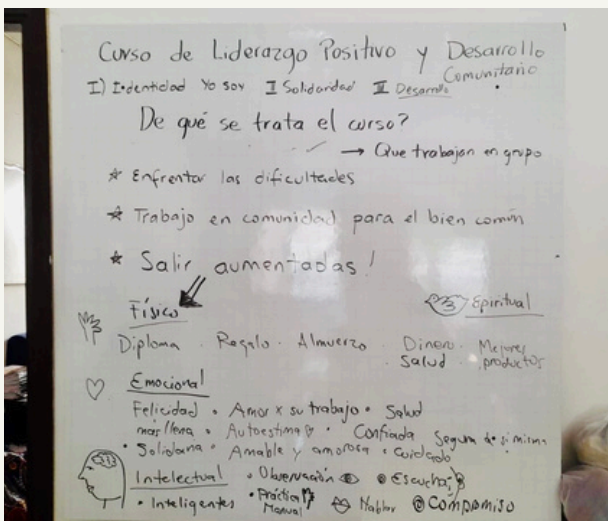 Curso de Liderazgo Positivo y Desarrollo
Comunitario
I) Identidad Yo soy II Solidaridad III Desarrollo
De qué se trata el curso?
→ Que trabajan en grupo
☆ Enfrentar las dificultades
☆ Trabajo en comunidad para el bien común
☆ Salir aumentadas!
Físico Espiritual
Diploma · Regalo · Almuerzo · Dinero · Mejores
Salud · productos
Emocional
Felicidad · Amor x su trabajo · Salud
más llena · Autoestima · Confiada Segura de si misma
· Solidaria · Amable y amorosa · cuidado
Intelectual · Observación · Escuchar
· Inteligentes · Práctica Manual Hablar Compromiso